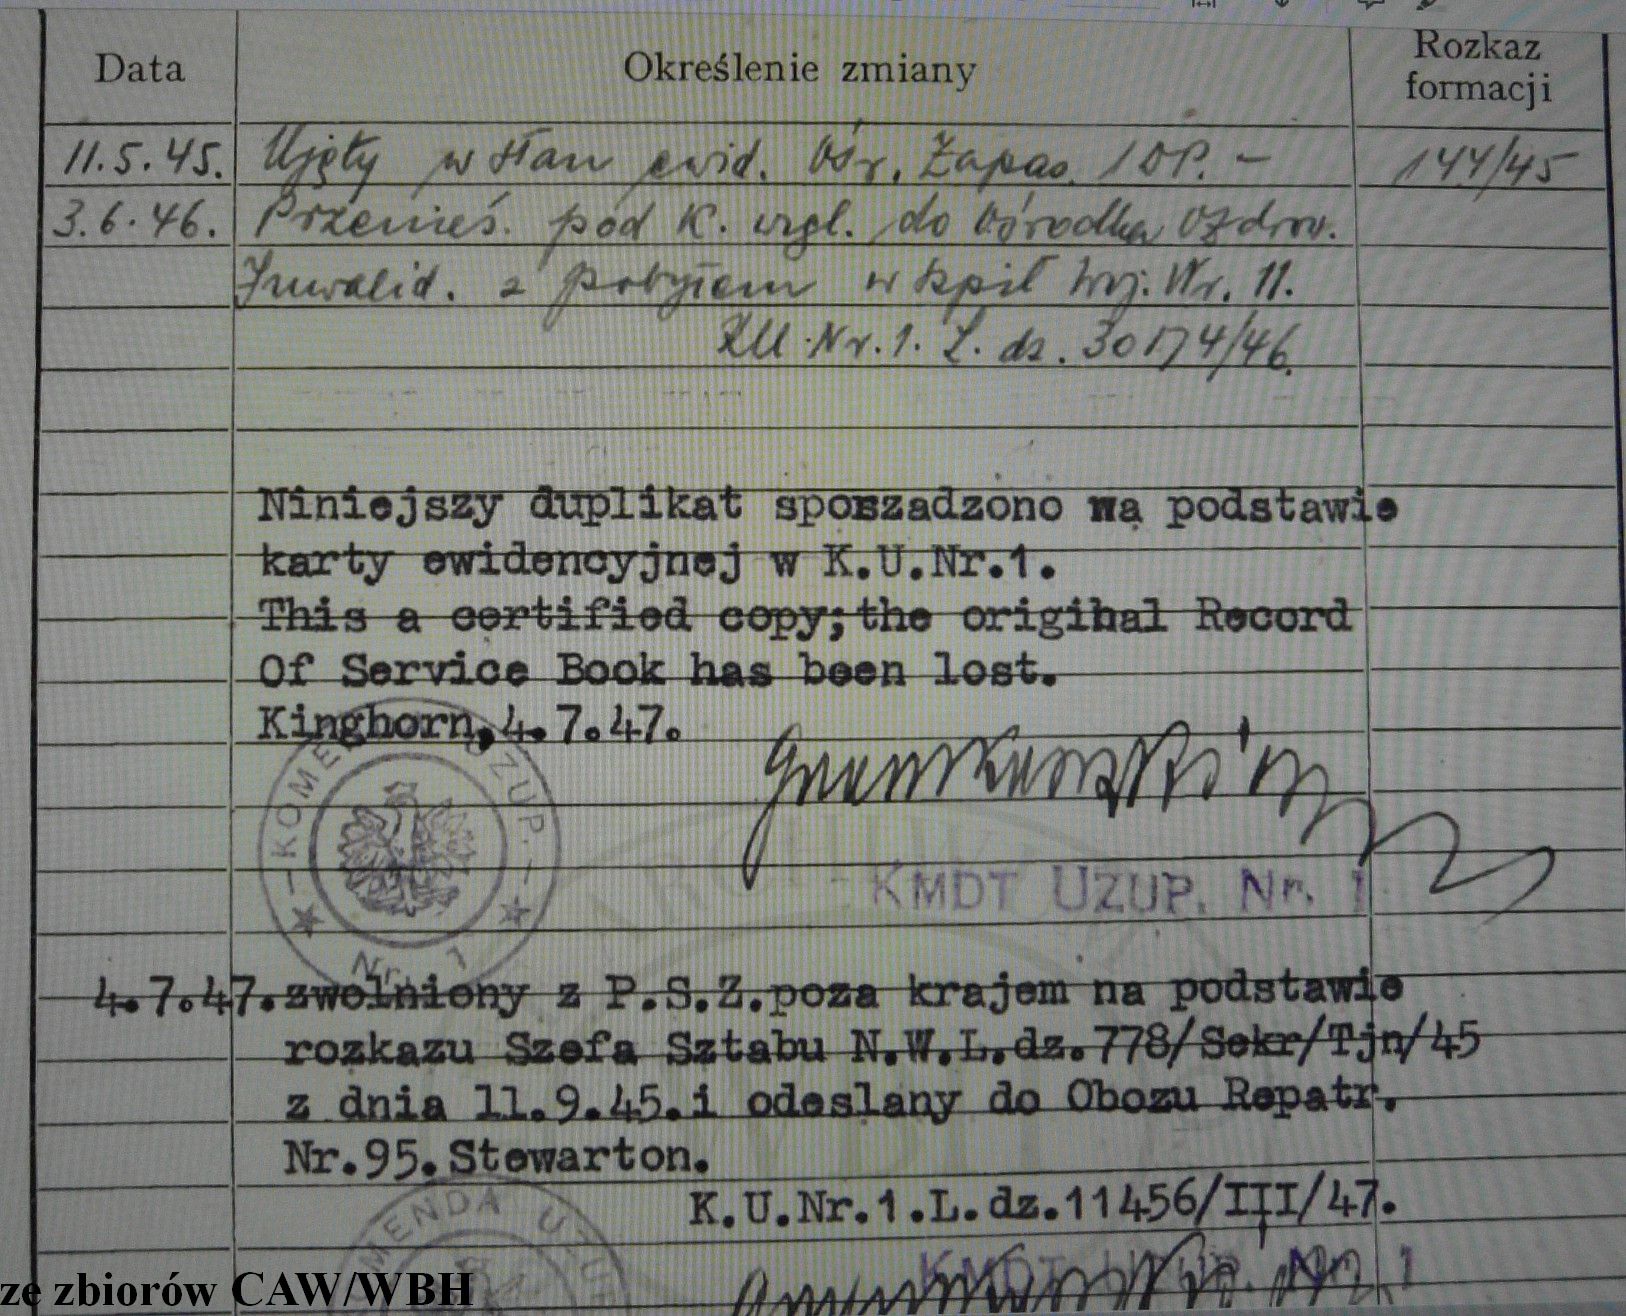 Data Określenie zmiany Rozkaz formacji
11.5.45. Ujęty w stan ewid. Ośr. Zapas. 1 DP. – 144/45
3.6.46. Przenieś. pod k. wzgl. do Ośrodka Ozdrow.
Inwalid. z pobytem w szpit Woj. Nr. 11.
KU. Nr. 1. L. dz. 30174/46.
Niniejszy duplikat sporzadzono na podstawie
karty ewidencyjnej w K.U.Nr.1.
This a certified copy;the original Record
Of Service Book has been lost.
Kinghorn,4.7.47.
KOME UZUP. Nr. 1
KMDT UZUP. Nr. 1
4.7.47. zwolniony z P.S.Z.poza krajem na podstawie
rozkazu Szefa Sztabu N.W.L.dz.778/Sekr/Tjn/45
z dnia 11.9.45.i odeslany do Obozu Repatr.
Nr.95.Stewarton.
K.U.Nr.1.L.dz.11456/III/47.
MENDA UZUP
KMDT UZUP. Nr. 1
ze zbiorów CAW/WBH